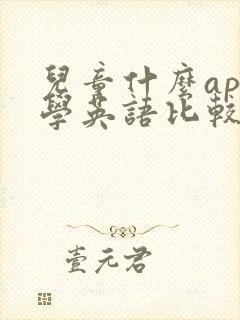 兒童什麼ap
學英語比較
壹元君